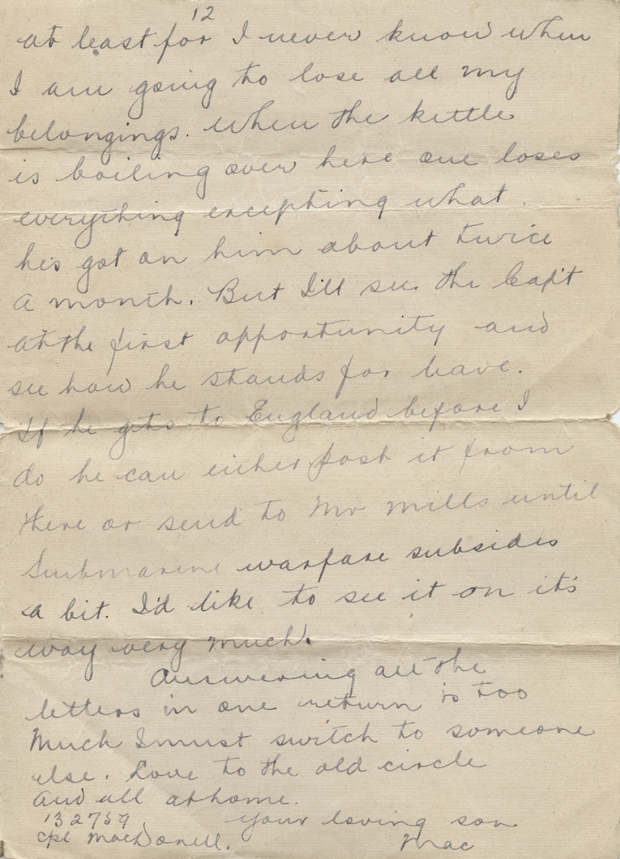 12
at least for I never know when
I am going to lose all my
belongings. When the kettle
is boiling over here one loses
everything excepting what
he's got on him about twice
a month. But I'll see the Capt
at the first opportunity and
see how he stands for leave.
If he gets to England before I
do he can either post it from
there or send to Mr Mills until
Submarine warfare subsides
a bit. I'd like to see it on it's
way very much.
Answering all the
letters in one return is too
much I must switch to someone
else. Love to the old circle
and all at home.
132759 your loving son
Cpl MacDonell. Mac